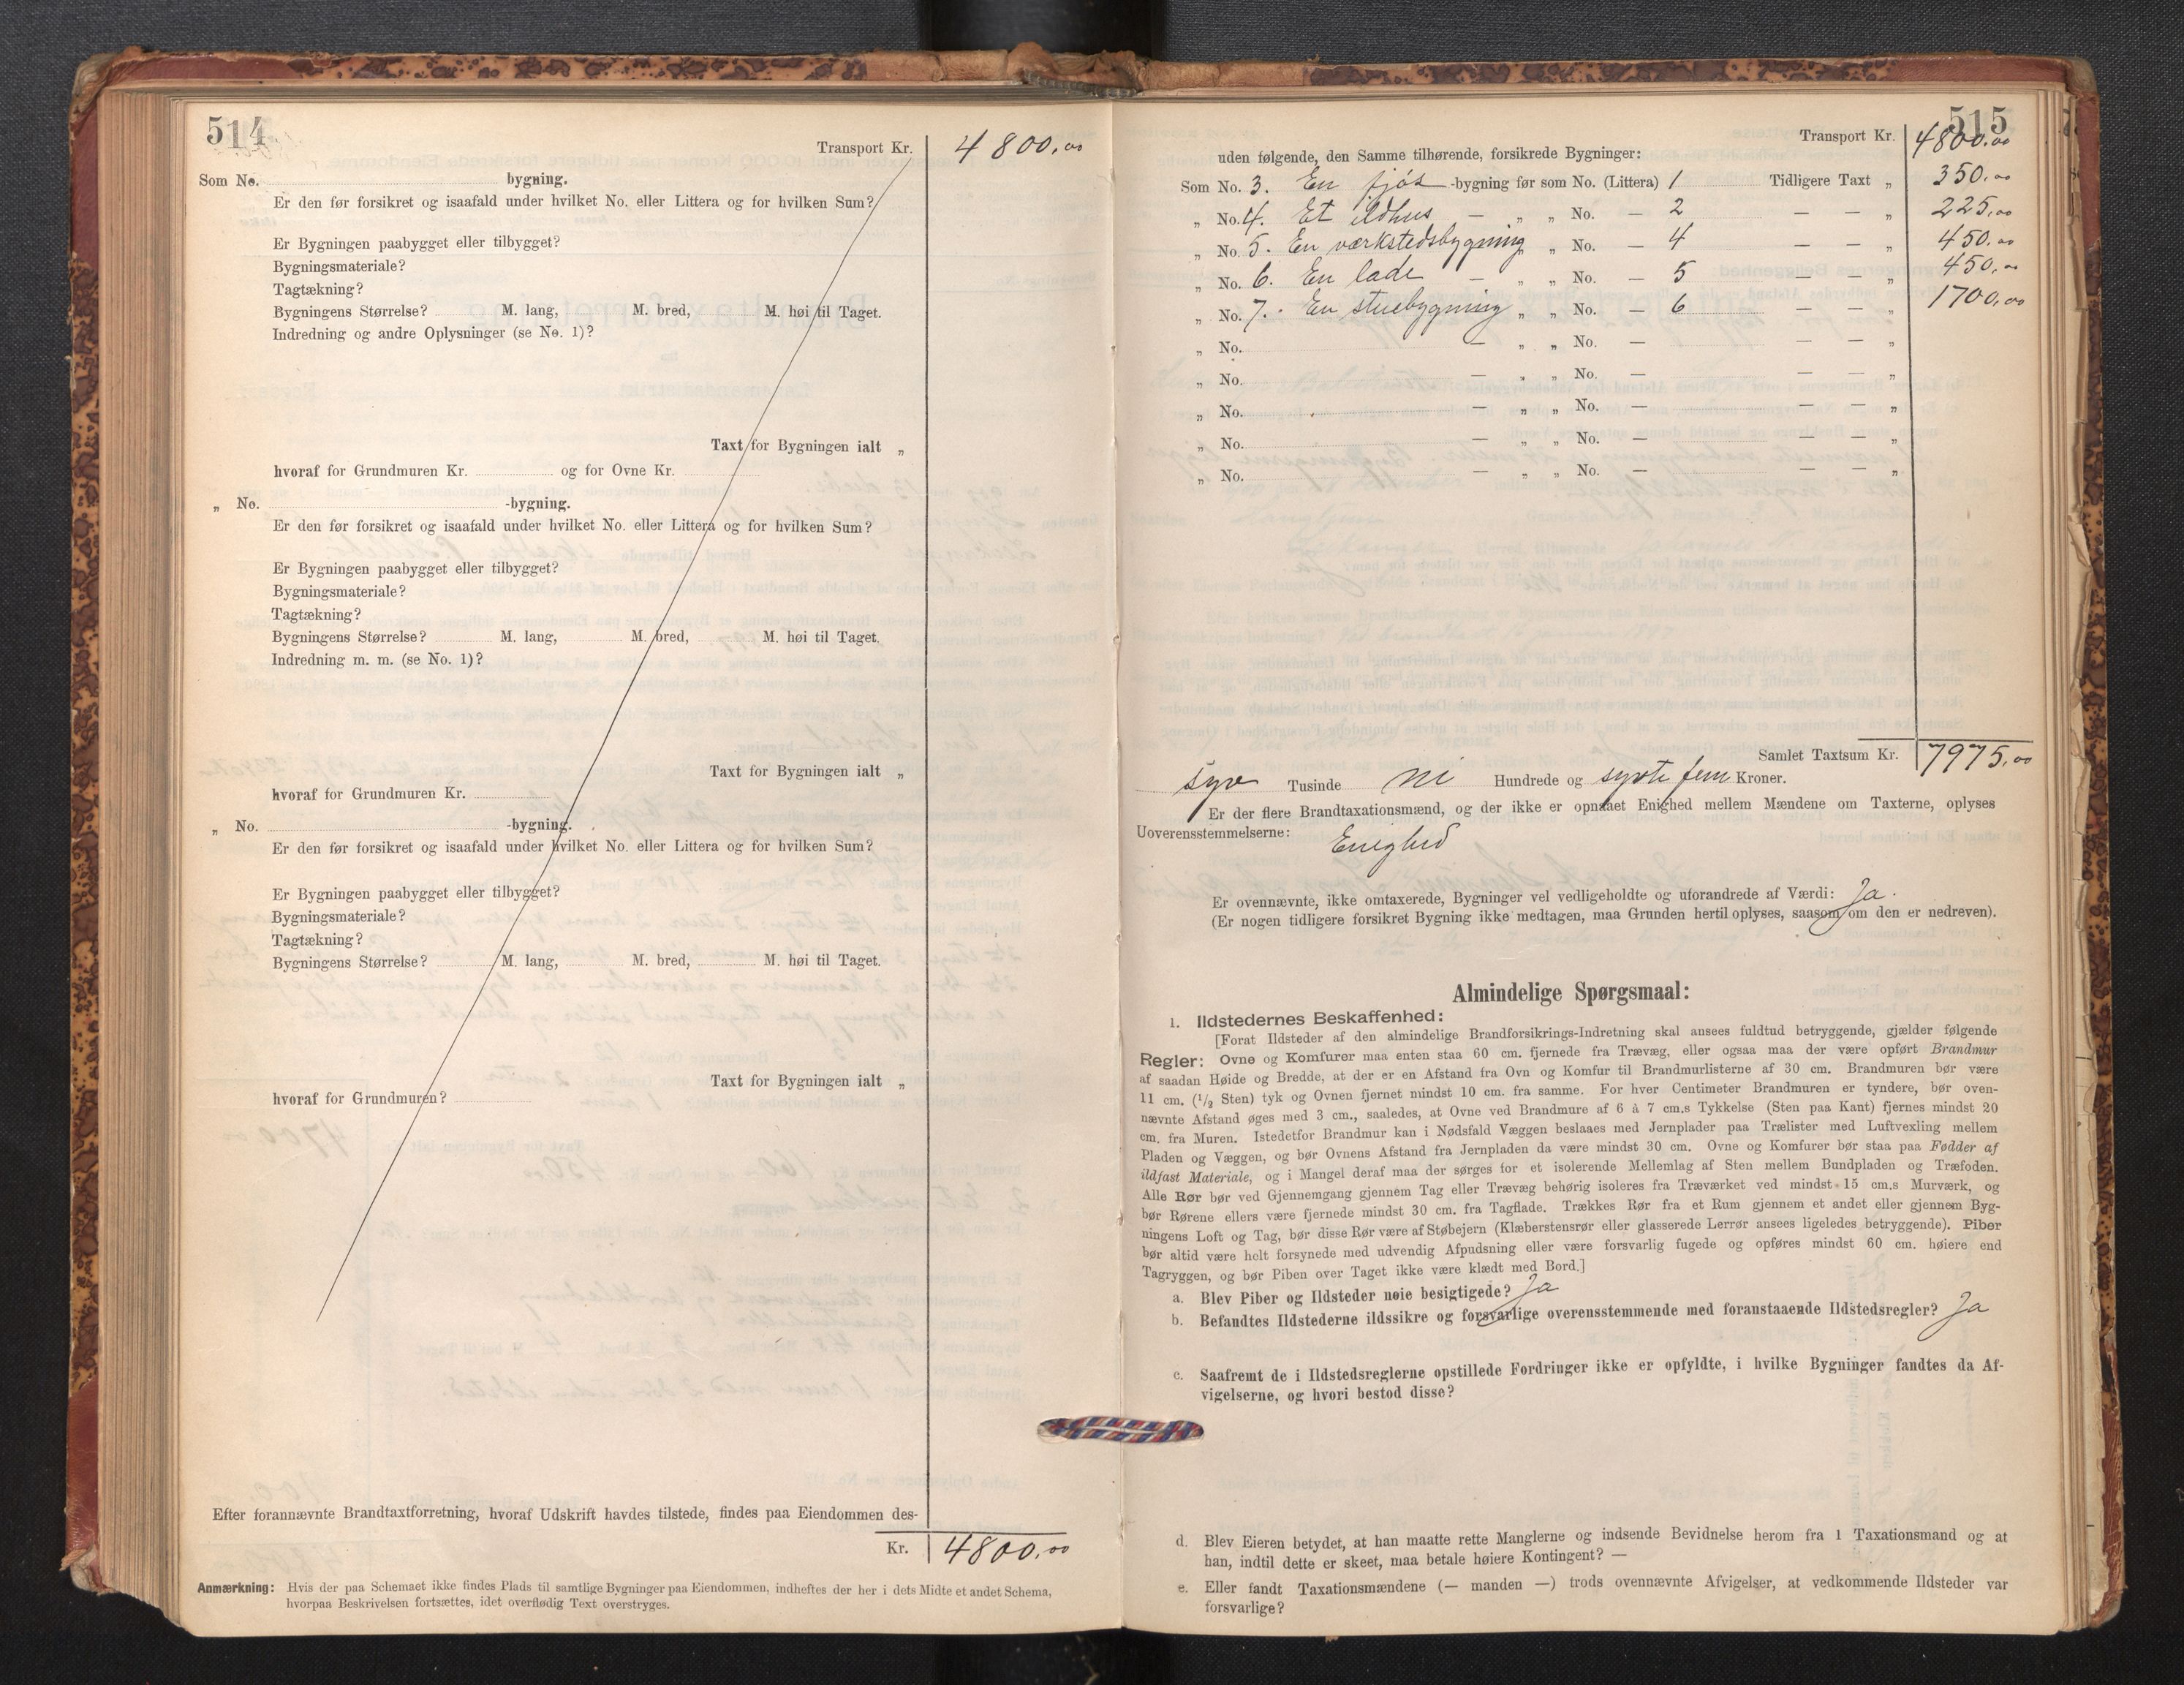 514
Transport Kr. 4800,00
Som No. bygning.
Er den før forsikret og isaafald under hvilket No. eller Littera og for hvilken Sum?
Er Bygningen paabygget eller tilbygget?
Bygningsmateriale?
Tagtækning?
Bygningens Størrelse? M. lang, M. bred, M. høi til Taget.
Indredning og andre Oplysninger (se No. 1)?
Taxt for Bygningen ialt „
hvoraf for Grundmuren Kr. og for Ovne Kr.
„ No. -bygning.
Er den før forsikret og isaafald under hvilket No. eller Littera og for hvilken Sum?
Er Bygningen paabygget eller tilbygget?
Bygningsmateriale?
Tagtækning?
Bygningens Størrelse? M. lang, M. bred, M. høi til Taget.
Indredning m. m. (se No. 1)?
Taxt for Bygningen ialt „
hvoraf for Grundmuren Kr.
„ No. -bygning.
Er den før forsikret og isaafald under hvilket No. eller Littera og for hvilken Sum?
Er Bygningen paabygget eller tilbygget?
Bygningsmateriale?
Tagtækning?
Bygningens Størrelse? M. lang, M. bred, M. høi til Taget.
Taxt for Bygningen ialt „
hvoraf for Grundmuren?
Efter forannævnte Brandtaxtforretning, hvoraf Udskrift havdes tilstede, findes paa Eiendommen des-
Kr. 4800,00
Anmærkning: Hvis der paa Schemaet ikke findes Plads til samtlige Bygninger paa Eiendommen, indheftes der her i dets Midte et andet Schema,
hvorpaa Beskrivelsen fortsættes, idet overflødig Text overstryges.
515
Transport Kr. 4800,00
uden følgende, den Samme tilhørende, forsikrede Bygninger:
Som No. 3. En fjös -bygning før som No. (Littera) 1 Tidligere Taxt „ 350,00
„ No. 4. Et ildhus — „ „ No. — 2 — — „ 225,00
„ No. 5. En værkstedsbygning „ No. — 4 — — „ 450,00
„ No. 6. En lade — „ „ No. — 5 — — „ 450,00
„ No. 7. En stuebygning „ „ No. — 6 — — „ 1700,00
„ No. — „ „ No. — — — „
„ No. — „ „ No. — — — „
„ No. — „ „ No. — — — „
„ No. — „ „ No. — — — „
„ No. — „ „ No. — — — „
Samlet Taxtsum Kr. 7975,00
syv Tusinde ni Hundrede og sytti fem Kroner.
Er der flere Brandtaxationsmænd, og der ikke er opnaaet Enighed mellem Mændene om Taxterne, oplyses
Uoverensstemmelserne: Enighed
Er ovennævnte, ikke omtaxerede, Bygninger vel vedligeholdte og uforandrede af Værdi: Ja.
(Er nogen tidligere forsikret Bygning ikke medtagen, maa Grunden hertil oplyses, saasom om den er nedreven).
Almindelige Spørgsmaal:
1. Ildstedernes Beskaffenhed:
[Forat Ildsteder af den almindelige Brandforsikrings-Indretning skal ansees fuldtud betryggende, gjælder følgende
Regler: Ovne og Komfurer maa enten staa 60 cm. fjernede fra Trævæg, eller ogsaa maa der være opført Brandmur
af saadan Høide og Bredde, at der er en Afstand fra Ovn og Komfur til Brandmurlisterne af 30 cm. Brandmuren bør være
11 cm. (1/2 Sten) tyk og Ovnen fjernet mindst 10 cm. fra samme. For hver Centimeter Brandmuren er tyndere, bør oven-
nævnte Afstand øges med 3 cm., saaledes, at Ovne ved Brandmure af 6 à 7 cm.s Tykkelse (Sten paa Kant) fjernes mindst 20
cm. fra Muren. Istedetfor Brandmur kan i Nødsfald Væggen beslaaes med Jernplader paa Trælister med Luftvexling mellem
Pladen og Væggen, og bør Ovnens Afstand fra Jernpladen da være mindst 30 cm. Ovne og Komfurer bør staa paa Fødder af
ildfast Materiale, og i Mangel deraf maa der sørges for et isolerende Mellemlag af Sten mellem Bundpladen og Træfoden.
Alle Rør bør ved Gjennemgang gjennem Tag eller Trævæg behørig isoleres fra Træværket ved mindst 15 cm.s Murværk, og
bør Rørene ellers være fjernede mindst 30 cm. fra Tagflade. Trækkes Rør fra et Rum gjennem et andet eller gjennem Byg-
ningens Loft og Tag, bør disse Rør være af Støbejern (Klæberstensrør eller glasserede Lerrør ansees ligeledes betryggende). Piber
bør altid være helt forsynede med udvendig Afpudsning eller være forsvarlig fugede og opføres mindst 60 cm. høiere end
Tagryggen, og bør Piben over Taget ikke være klædt med Bord.]
a. Blev Piber og Ildsteder nøie besigtigede? Ja
b. Befandtes Ildstederne ildssikre og forsvarlige overensstemmende med foranstaaende Ildstedsregler? Ja
c. Saafremt de i Ildstedsreglerne opstillede Fordringer ikke er opfyldte, i hvilke Bygninger fandtes da Af-
vigelserne, og hvori bestod disse?
d. Blev Eieren betydet, at han maatte rette Manglerne og indsende Bevidnelse herom fra 1 Taxationsmand og at
han, indtil dette er skeet, maa betale høiere Kontingent? —
e. Eller fandt Taxationsmændene (— manden —) trods ovennævnte Afvigelser, at vedkommende Ildsteder var
forsvarlige?